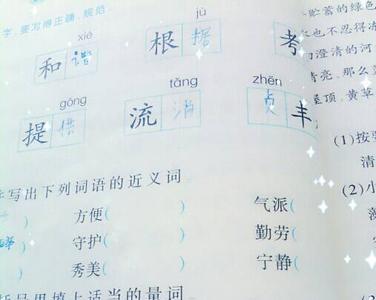 字,要写得正确、规范。
贮蓄的绿色
xié jù
和谐 根据 考
也不忍得冻
澄清的河
gōng tǎng zhēn
提供 流淌 贞丰
屋顶,黄草
(1)按
清
写出下列词语的近义词
(2)小
方便( ) 气派(
守护( ) 勤劳(
秀美( ) 宁静(
括号里填上适当的量词